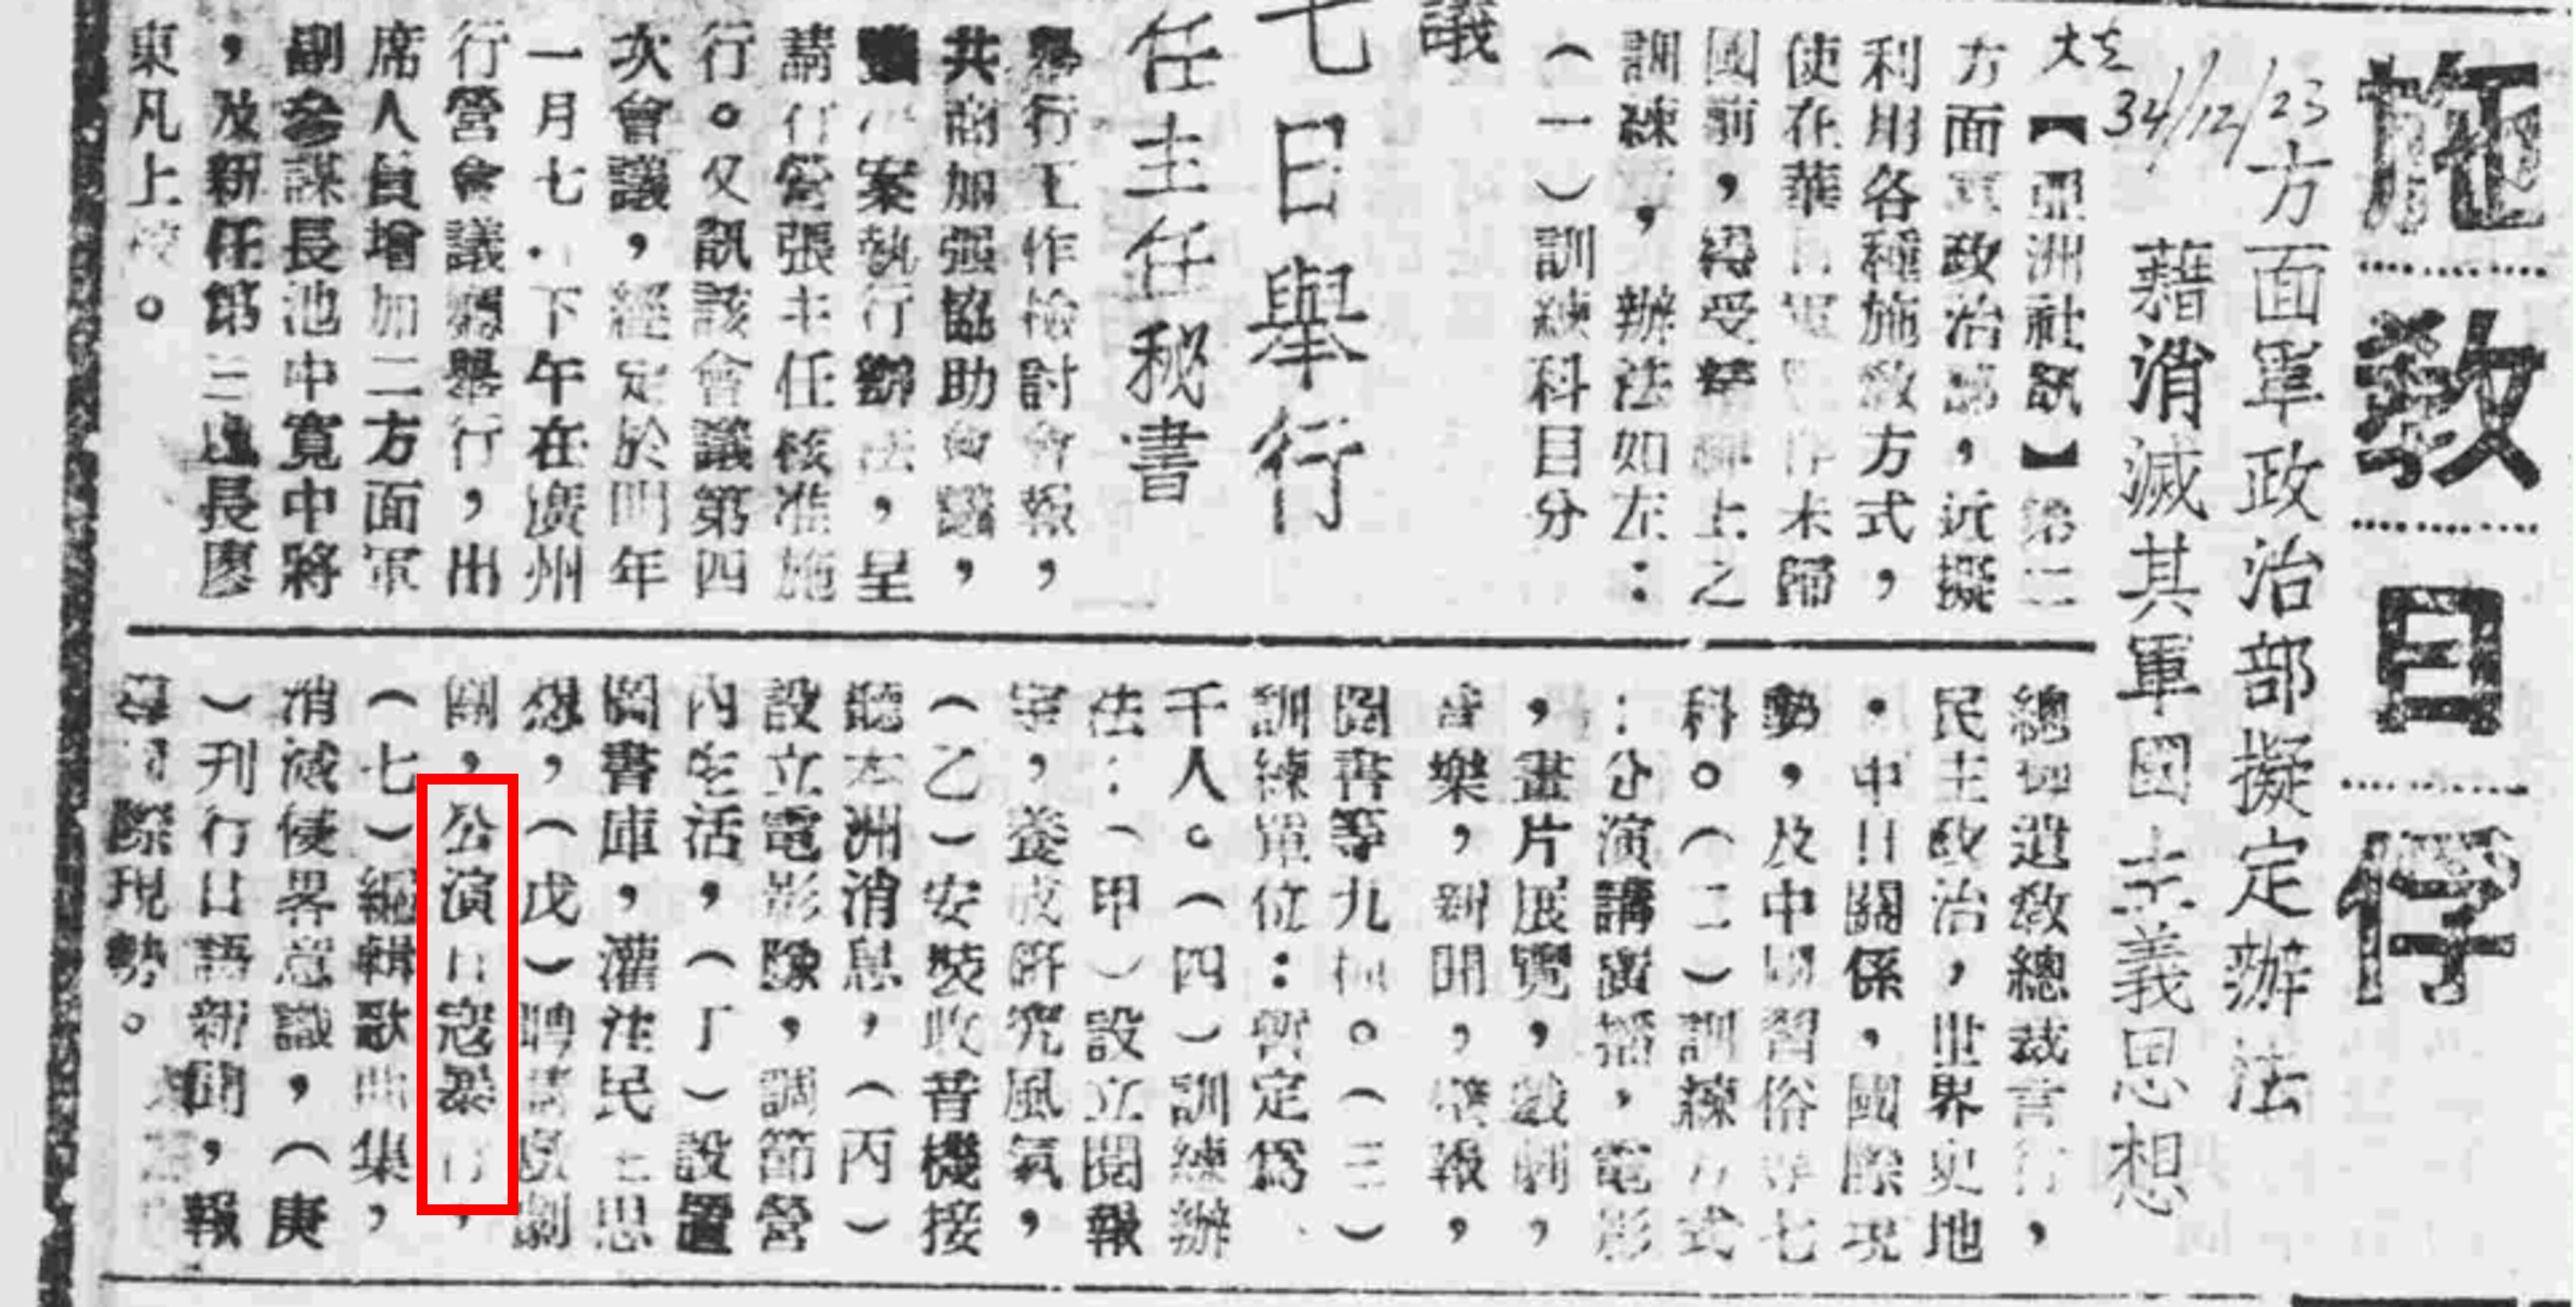 施教日俘
34/12/23
大光
方面軍政治部擬定辦法
藉消滅其軍國主義思想
【亞洲社訊】第二
方面軍政治部，近擬
利用各種施敎方式，
使在華日軍 未歸
國前，得受精神上之
訓練，辦法如左：
（一）訓練科目分
總理遺敎總裁言行，
民主政治，世界史地
，中日關係，國際現
勢，及中國習俗等七
科。（二）訓練方式
：分演講廣播，電影
，畫片展覽，戲劇，
音樂，新聞，壁報，
圖書等九種。（三）
訓練單位：暫定爲
千人。（四）訓練辦
法：（甲）設立閱報
室，養成硏究風氣，
（乙）安裝收音機接
聽本洲消息，（丙）
設立電影隊，調節營
內生活，（丁）設置
圖書庫，灌注民主思
想，（戊）聘請戲劇
團，公演日寇暴行，
（七）編輯歌曲集，
消滅侵畧意識，（庚
）刊行日語新聞，報
導國際現勢。
議
七日舉行
任主任秘書
舉行工作檢討會報，
共商加强協助會議，
案執行辦法，呈
請行營張主任核准施
行。又訊該會議第四
次會議，經定於明年
一月七日下午在廣州
行營會議廳舉行，出
席人員增加二方面軍
副參謀長池中寬中將
，及新任第三處長廖
東凡上校。